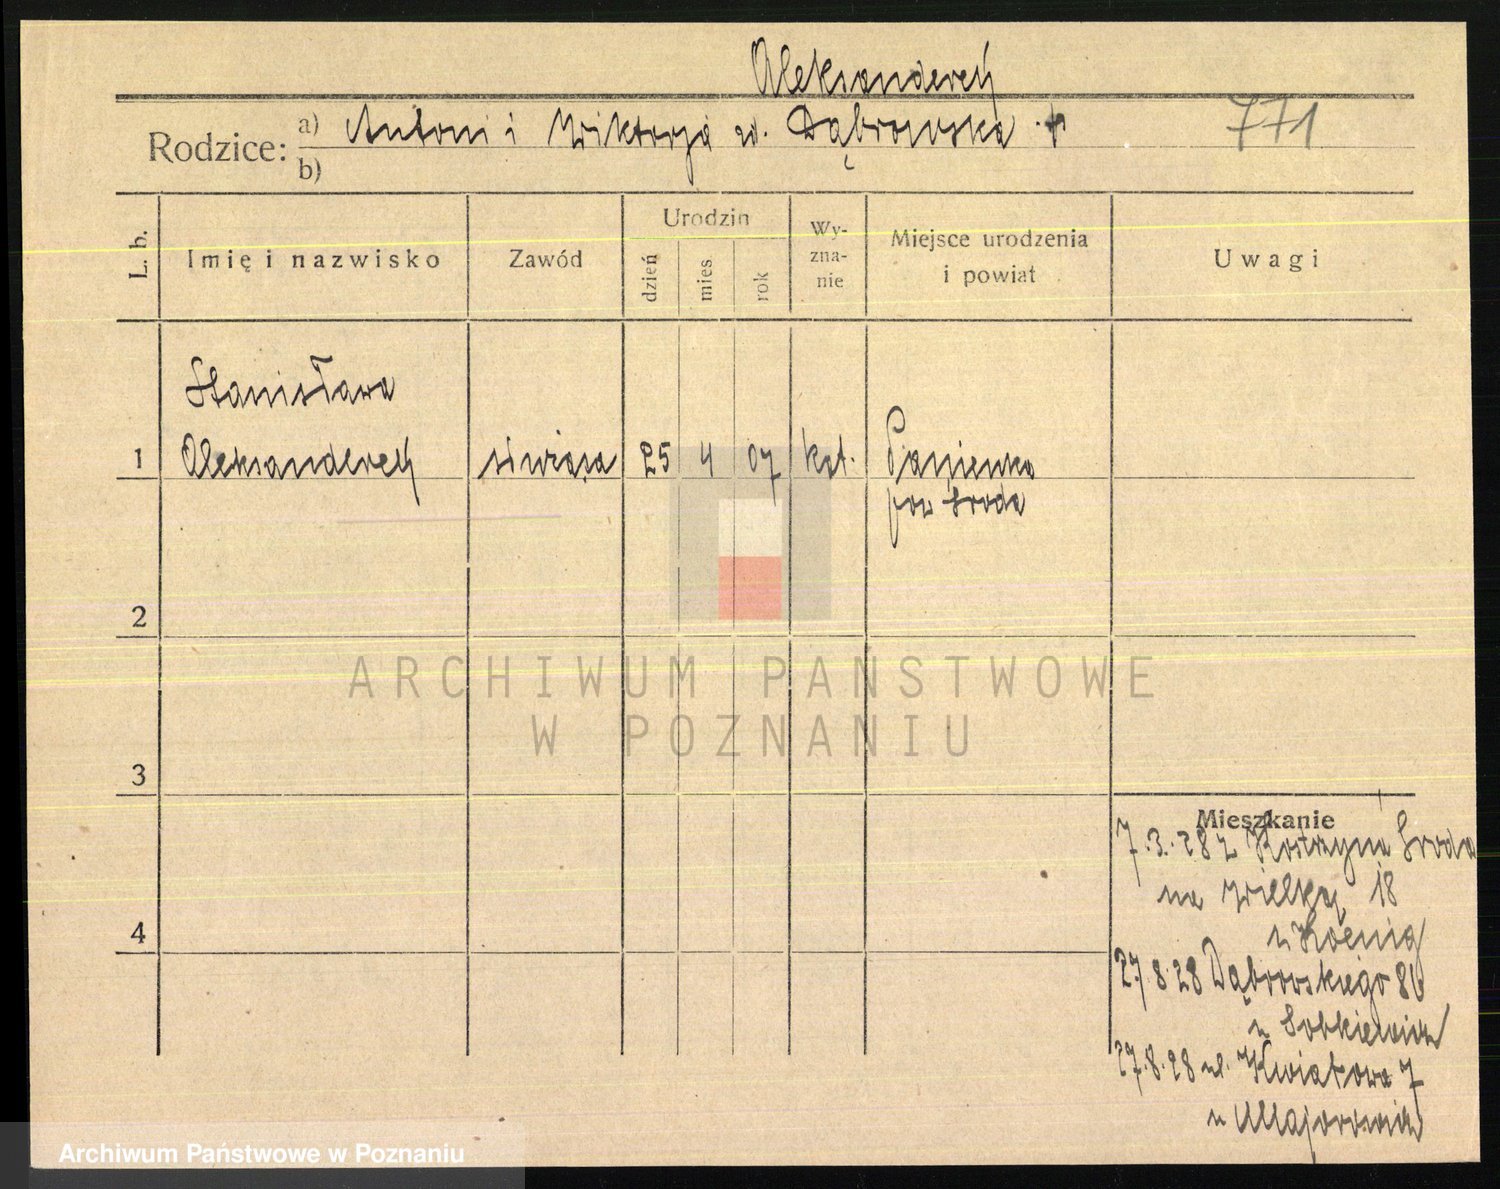 Aleksanderek
Rodzice: a) Antoni i Wiktorja ur. Dąbrowska
771
b)
L. b.
Imię i nazwisko
Zawód
Urodzin
dzień
mies.
rok
Wy-
zna-
nie
Miejsce urodzenia
i powiat
Uwagi
Stanisława
1 Aleksanderek służąca 25 4 07 kat. Pasienka
pow Środa
2
3
4
Mieszkanie
7.3.28 z Kostrzyna Środa
na Wielką 18
u Koenig
27.8.28 Dąbrowskiego
u
27.8.28 ul. Kwiatowa 7
u Majorowicz
ARCHIWUM PAŃSTWOWE
W POZNANIU
Archiwum Państwowe w Poznaniu